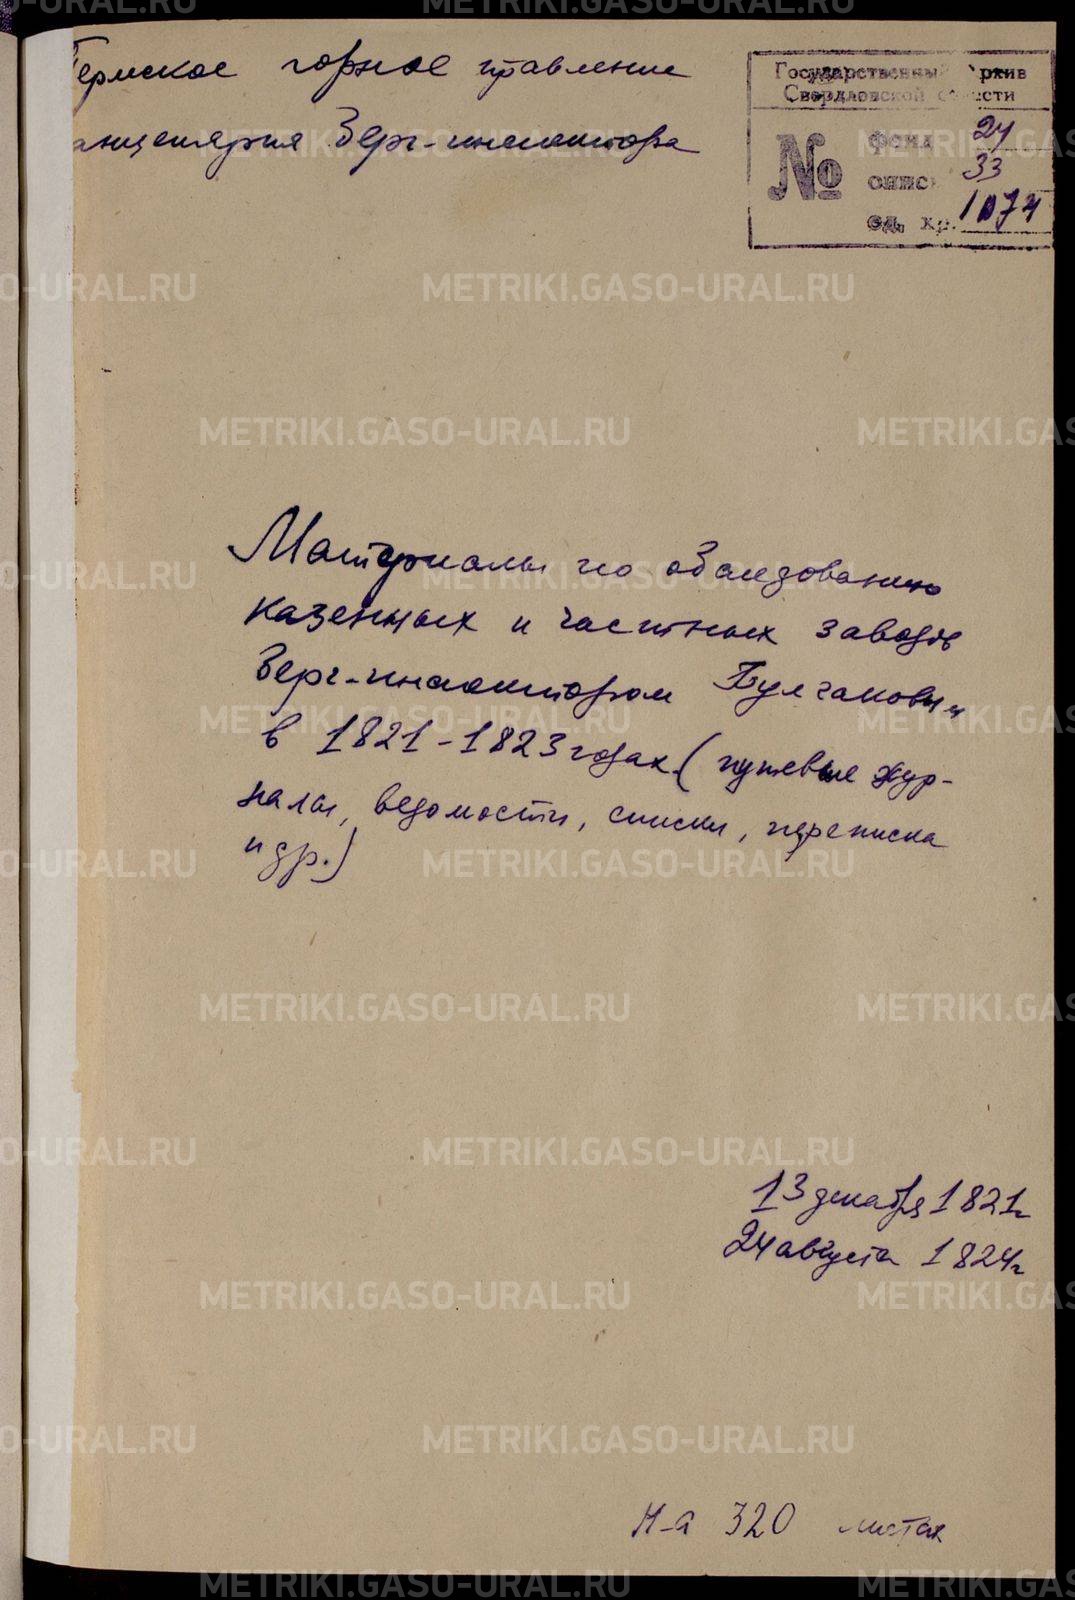 Пермское горное правление
анцелярия Берг-инспектора
Государственный Архив
Свердловской области
№
фонд 24
опись 33
ед. хр. 1074
Материалы по обследованию
казенных и частных заводов
Берг-инспектором Булгаковым
в 1821-1823 годах (путевые жур-
налы, ведомости, списки, переписка
и др.)
13 декабря 1821г
24 августа 1824г
На 320 листах
METRIKI.GASO-URAL.RU